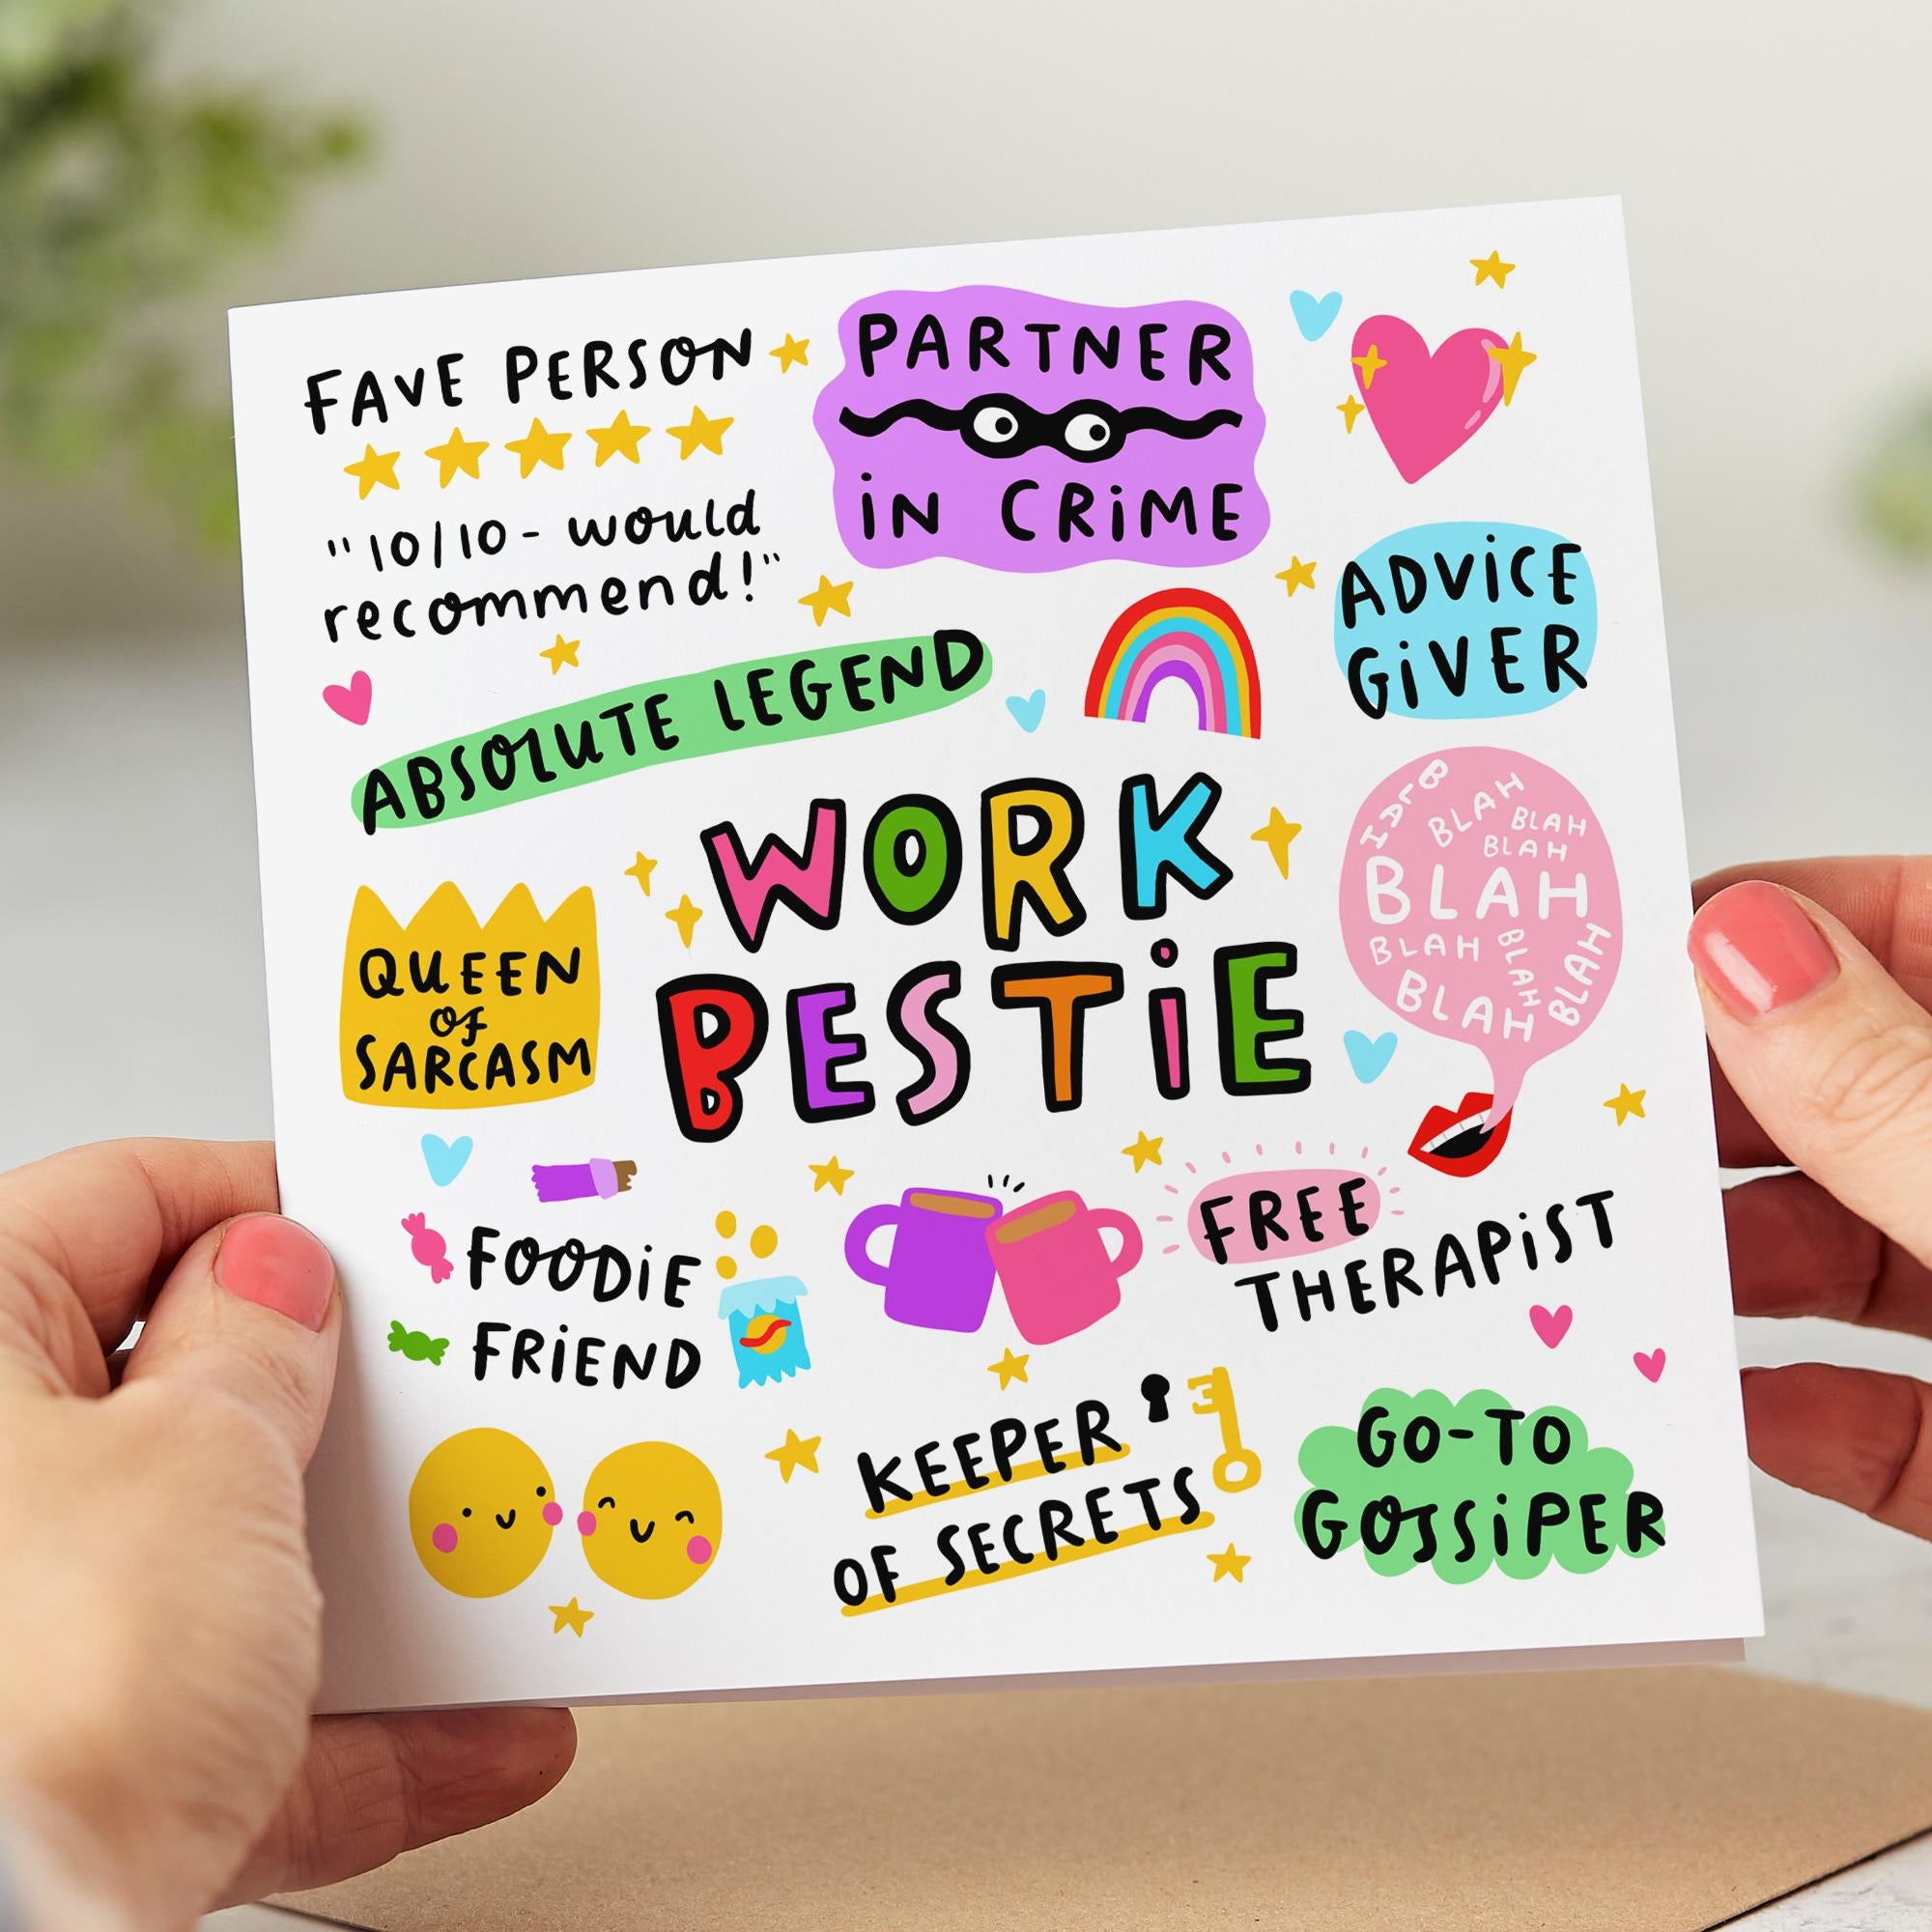 FAVE PERSON
"10/10 - would
recommend!"
PARTNER
iN CRiME
ADViCE
GiVER
ABSOLUTE LEGEND
WORK
BESTiE
BLAH
BLAH
BLAH
BLAH
BLAH
BLAH
BLAH
BLAH
BLAH
QUEEN
OF
SARCASM
FOODiE
FRiEND
FREE
THERAPiST
KEEPER
OF SECRETS
GO-TO
GOSSiPER